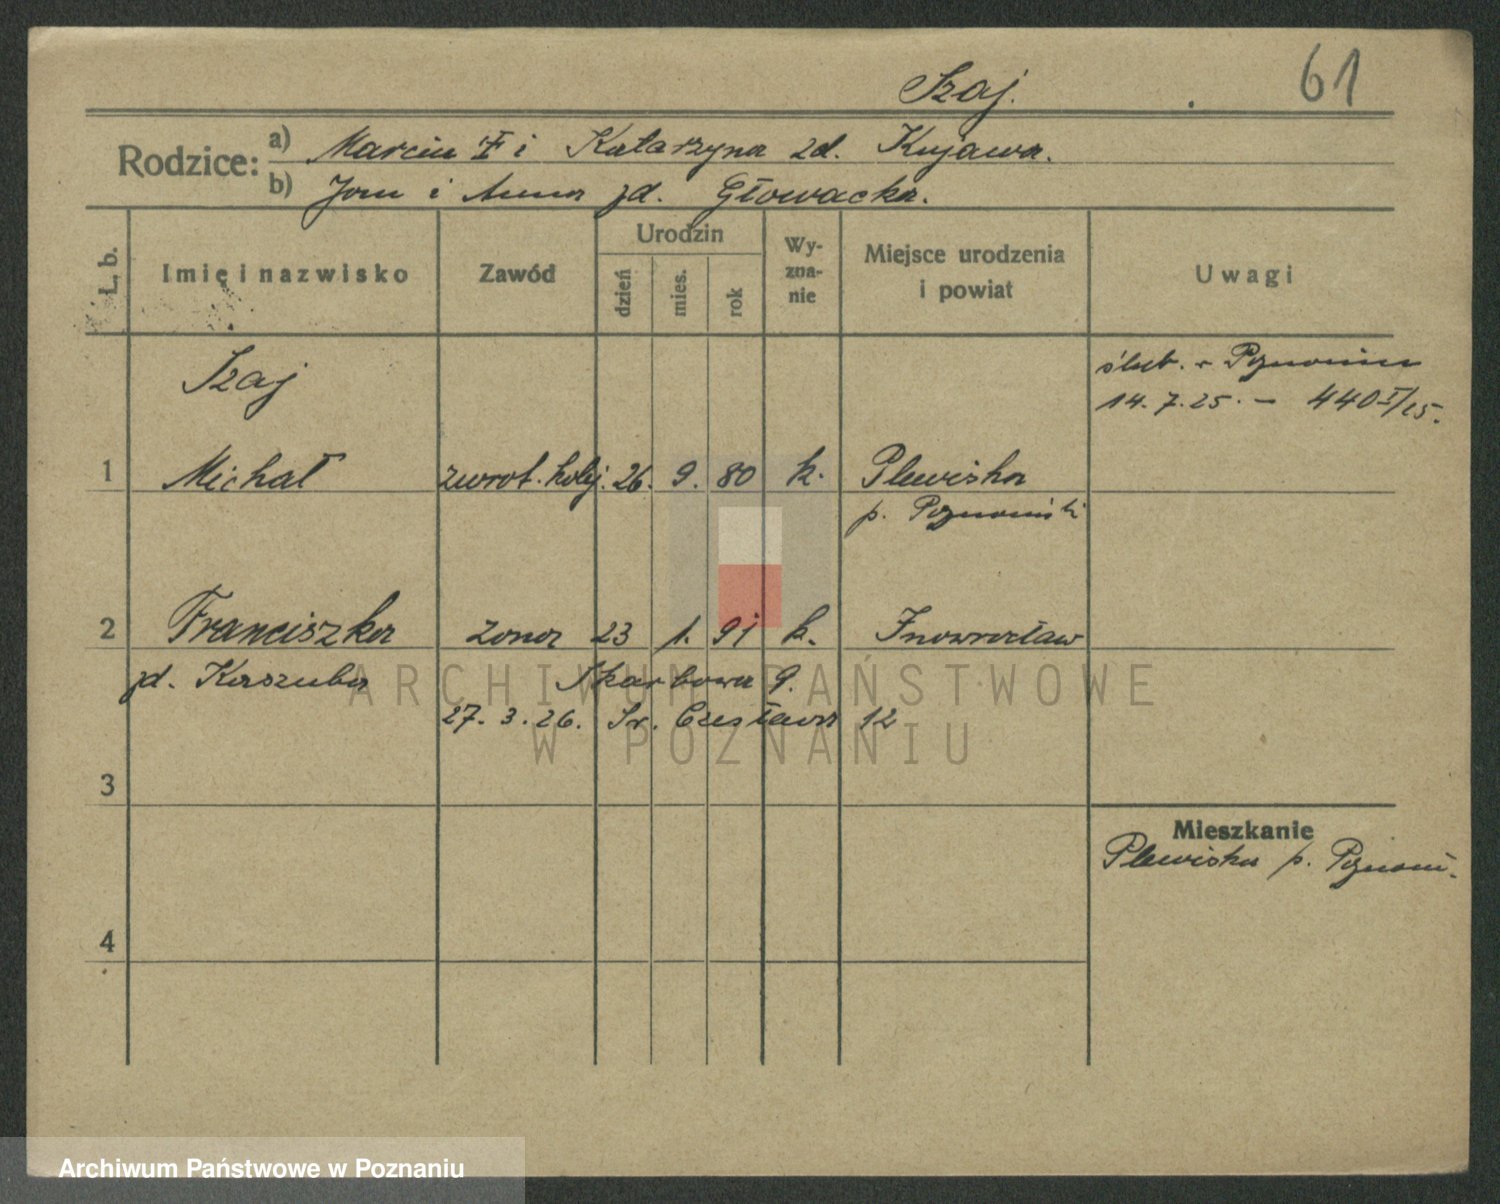 61
Szaj.
Rodzice: a) Marcin i Katarzyna zd. Kujawa.
b) Jan i Anna zd. Głowacka.
L. b. Imię i nazwisko Zawód Urodzin dzień mies. rok Wy-zna-nie Miejsce urodzenia i powiat Uwagi
Szaj
ślub. w Poznaniu
14.7.25. – 440 I/25.
1 Michał zwrot. kolej. 26. 9. 80 k. Plewiska
p. Poznański
2 Franciszka żona 23 1. 91 k. Inowrocław
zd. Kaszuba Skarbowa 9.
27.3.26. Św. Czesława 12
ARCHIWUM PAŃSTWOWE
W POZNANIU
3
Mieszkanie
Plewiska p. Poznań.
4
Archiwum Państwowe w Poznaniu